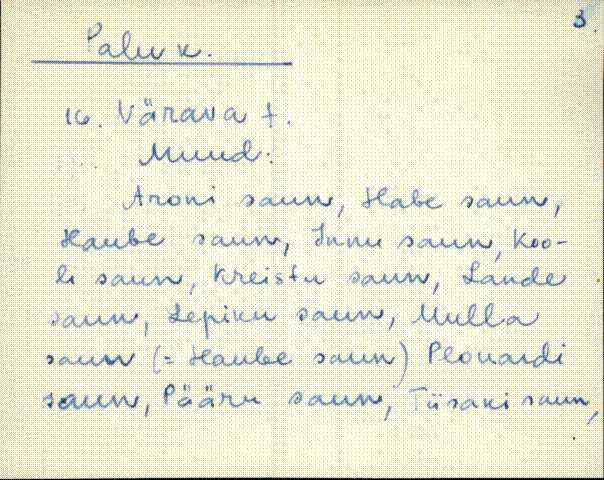 3.
Palu k.
16. Värava t.
Muud:
Aroni saun, Habe saun,
Haube saun, Innu saun, Koo-
li saun, Kreistu saun, Lande
saun, Lepiku saun, Mulla
saun (= Haube saun) Plouardi
saun, Pääru saun, Tiisaki saun,